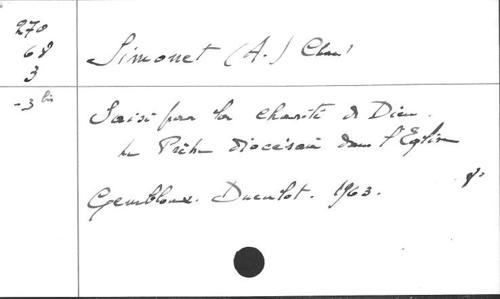 270
68
3
Simonet (A.) Chan!
- 3 bis
Saisi par la charité de Dieu.
Le Prêtre diocésain dans l'Eglise
Gembloux. Duculot. 1963. 8°